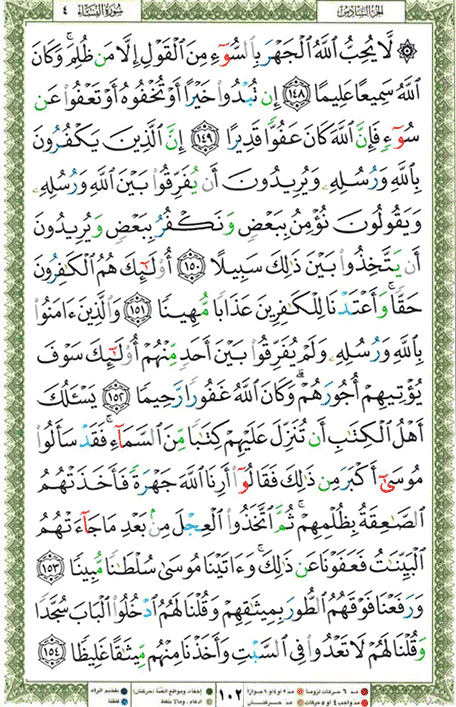 الجزء السادس سورة النساء ٤
۞ لَّا يُحِبُّ ٱللَّهُ ٱلْجَهْرَ بِٱلسُّوٓءِ مِنَ ٱلْقَوْلِ إِلَّا مَن ظُلِمَ ۚ وَكَانَ
ٱللَّهُ سَمِيعًا عَلِيمًا ١٤٨ إِن تُبْدُوا۟ خَيْرًا أَوْ تُخْفُوهُ أَوْ تَعْفُوا۟ عَن
سُوٓءٍ فَإِنَّ ٱللَّهَ كَانَ عَفُوًّا قَدِيرًا ١٤٩ إِنَّ ٱلَّذِينَ يَكْفُرُونَ
بِٱللَّهِ وَرُسُلِهِۦ وَيُرِيدُونَ أَن يُفَرِّقُوا۟ بَيْنَ ٱللَّهِ وَرُسُلِهِۦ
وَيَقُولُونَ نُؤْمِنُ بِبَعْضٍ وَنَكْفُرُ بِبَعْضٍ وَيُرِيدُونَ
أَن يَتَّخِذُوا۟ بَيْنَ ذَٰلِكَ سَبِيلًا ١٥٠ أُو۟لَٰٓئِكَ هُمُ ٱلْكَٰفِرُونَ
حَقًّا ۚ وَأَعْتَدْنَا لِلْكَٰفِرِينَ عَذَابًا مُّهِينًا ١٥١ وَٱلَّذِينَ ءَامَنُوا۟
بِٱللَّهِ وَرُسُلِهِۦ وَلَمْ يُفَرِّقُوا۟ بَيْنَ أَحَدٍ مِّنْهُمْ أُو۟لَٰٓئِكَ سَوْفَ
يُؤْتِيهِمْ أُجُورَهُمْ ۗ وَكَانَ ٱللَّهُ غَفُورًا رَّحِيمًا ١٥٢ يَسْـَٔلُكَ
أَهْلُ ٱلْكِتَٰبِ أَن تُنَزِّلَ عَلَيْهِمْ كِتَٰبًا مِّنَ ٱلسَّمَآءِ ۚ فَقَدْ سَأَلُوا۟
مُوسَىٰٓ أَكْبَرَ مِن ذَٰلِكَ فَقَالُوٓا۟ أَرِنَا ٱللَّهَ جَهْرَةً فَأَخَذَتْهُمُ
ٱلصَّٰعِقَةُ بِظُلْمِهِمْ ۚ ثُمَّ ٱتَّخَذُوا۟ ٱلْعِجْلَ مِنۢ بَعْدِ مَا جَآءَتْهُمُ
ٱلْبَيِّنَٰتُ فَعَفَوْنَا عَن ذَٰلِكَ ۚ وَءَاتَيْنَا مُوسَىٰ سُلْطَٰنًا مُّبِينًا ١٥٣
وَرَفَعْنَا فَوْقَهُمُ ٱلطُّورَ بِمِيثَٰقِهِمْ وَقُلْنَا لَهُمُ ٱدْخُلُوا۟ ٱلْبَابَ سُجَّدًا
وَقُلْنَا لَهُمْ لَا تَعْدُوا۟ فِى ٱلسَّبْتِ وَأَخَذْنَا مِنْهُم مِّيثَٰقًا غَلِيظًا ١٥٤
١٠٢